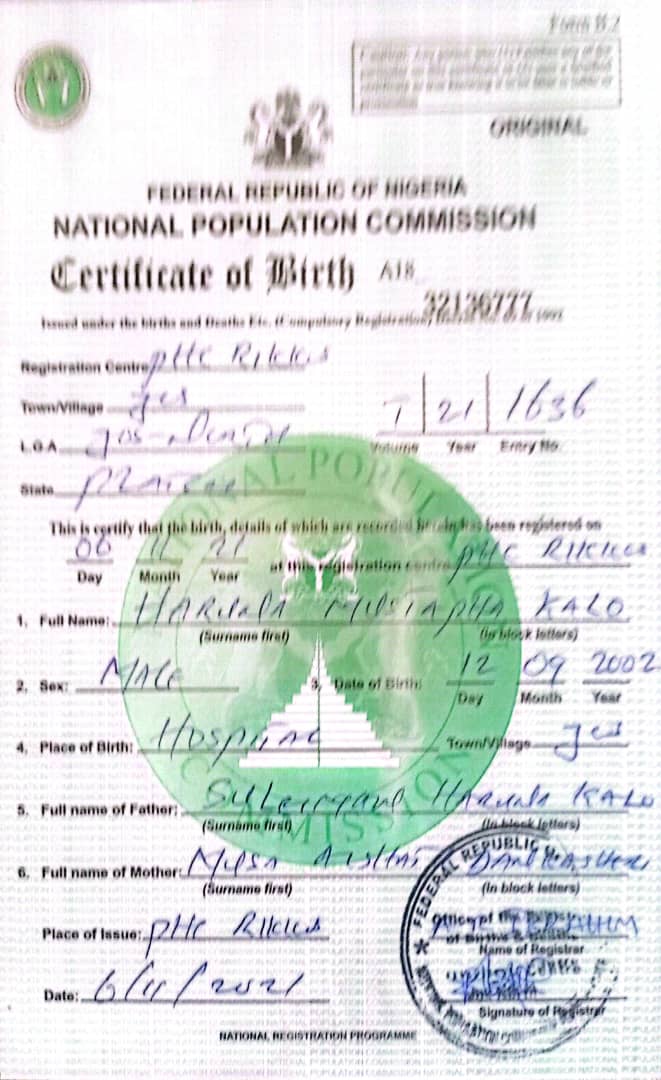 Form B.2
ORIGINAL
FEDERAL REPUBLIC OF NIGERIA
NATIONAL POPULATION COMMISSION
Certificate of Birth A18
32136777
Issued under the births and Deaths Etc. (Compulsory Registration) 1992
Registration Centre PHC RIKKOS
Town/Village Jos
T 21 1636
L.G.A Jos-North
Volume Year Entry No.
State PLATEAU
This is certify that the birth, details of which are recorded herein has been registered on
06 11 21
at this registration centre PHC RIKKOS
Day Month Year
1. Full Name: HARUNA MUSTAPHA KALO
(Surname first) (In block letters)
2. Sex: MALE 3. Date of Birth: 12 09 2002
Day Month Year
4. Place of Birth: HOSPITAL Town/Village Jos
5. Full name of Father: HARUNA KALO
(Surname first) (In block letters)
6. Full name of Mother: MUSA
(Surname first) (In block letters)
Place of Issue: PHC RIKKOS
IBRAHIM
Name of Registrar
Date: 6/11/2021
Signature of Registrar
FEDERAL REPUBLIC
NATIONAL POPULATION COMMISSION
NATIONAL REGISTRATION PROGRAMME